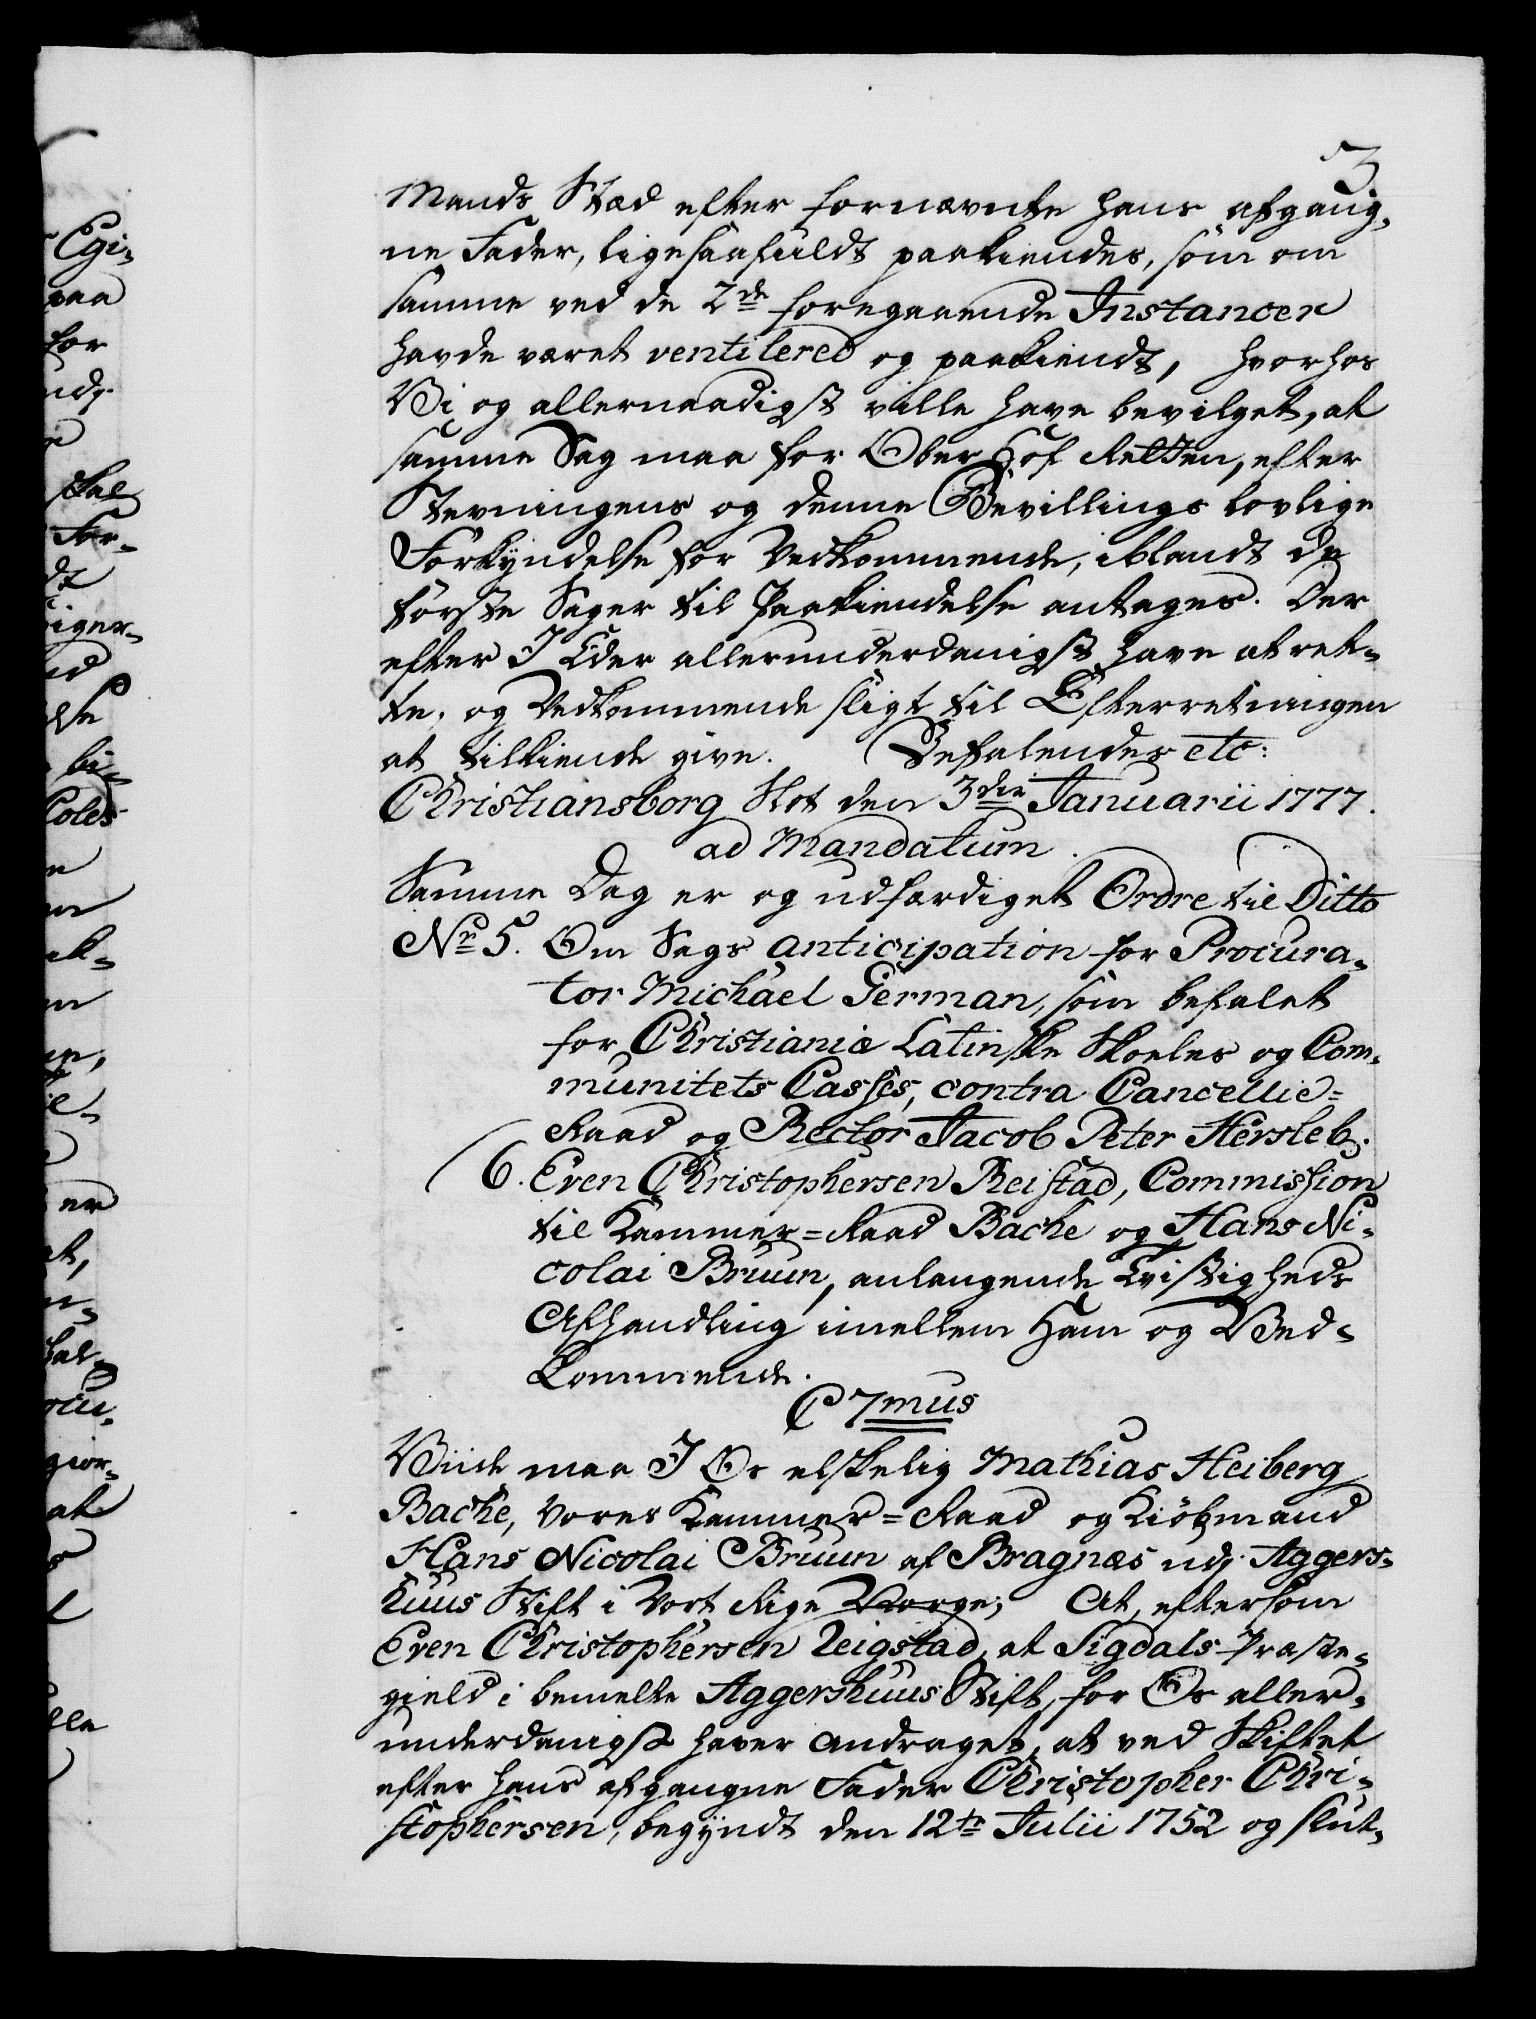 3
Mands Stæd efter fornævnte hans afgang-
ne Fader, ligesaafuldt paakiendes, som om
samme ved de 2de foregaaende Instancer
havde været ventilered og paakiendt, hvorhos
Vi og allernaadigst ville have bevilget, at
samme Sag maa for Ober Hof Retten, efter
Stevningens og denne Bevillings lovlige
Forkyndelse for Vedkommende, iblandt de
første Sager til Paakiendelse antages. Der
efter I Eder allerunderdanigst have at ret-
te, og Vedkommende sligt til Efterretningen
at tilkiende give. Befalendes etc:
Christiansborg Slot den 3die Januarii 1777.
ad Mandatum.
Samme Dag er og udfærdiget Ordre til Ditto
No 5. Om Sags anticipation for Procura-
tor Michael German, som befalet
for Christianiæ Latinske Skoeles og Com-
munitets Casses, contra Cancellie-
Raad og Rector Jacob Peter Hersleb.
6. Even Christophersen Reistad, Commission
til Kammer-Raad Bache og Hans Ni-
colai Bruun, anlangende Tvistigheds
Afhandling imellem Ham og Ved-
kommende.
C 7mus
Viide maa I Os elskelig Mathias Heiberg
Bache, vores Kammer-Raad og Kiöbmand
Hans Nicolai Bruun af Bragnæs udj Aggers-
huus Stift i Vort Rige Norge; At, eftersom
Even Christophersen Reigstad, at Sigdals Præste-
gield i bemelte Aggershuus Stift, for Os aller-
underdanigst haver andraget, at ved Skiftet
efter hans afgangne Fader Christopher Chri-
stophersen, begyndt den 12te Julii 1752 og slut-
Egi-
paa
for
skal
For-
iger-
bi-
Coles
er
giør-
at